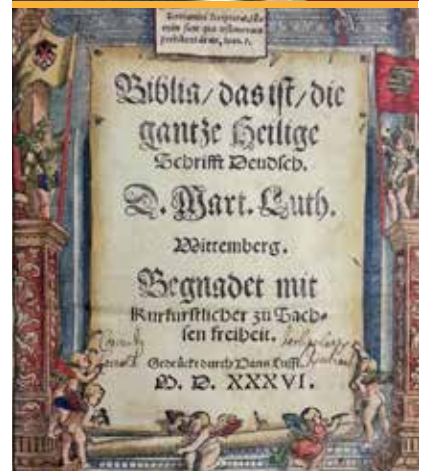 Biblia/das ist/die
gantze Heilige
Schrifft Deudsch.
D. Mart. Luth.
Wittemberg.
Begnadet mit
Kurfurstlicher zu Sach-
sen freiheit.
Gedrückt durch Hans Lufft.
M. D. XXXVI.